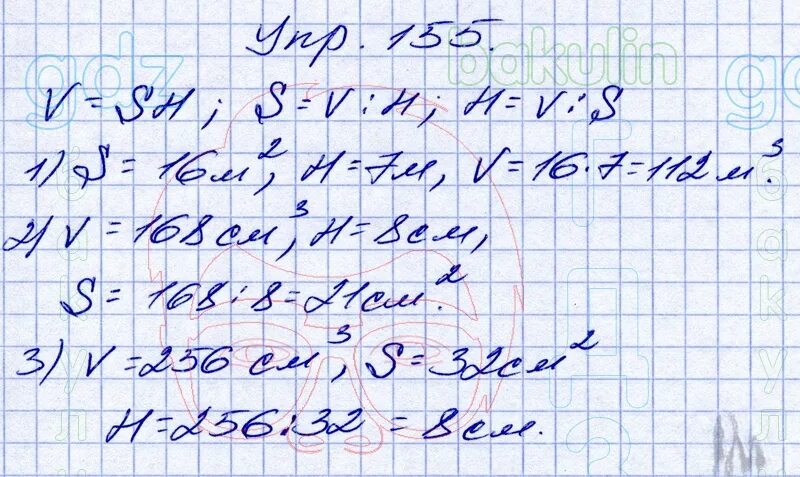 Упр. 155.
V = SH; S = V : H; H = V : S
1) S = 16м², H = 7м, V = 16·7 = 112м³.
2) V = 168см³, H = 8см,
S = 168 : 8 = 21см².
3) V = 256 см³, S = 32см²
H = 256 : 32 = 8см.
gdz
bakulin